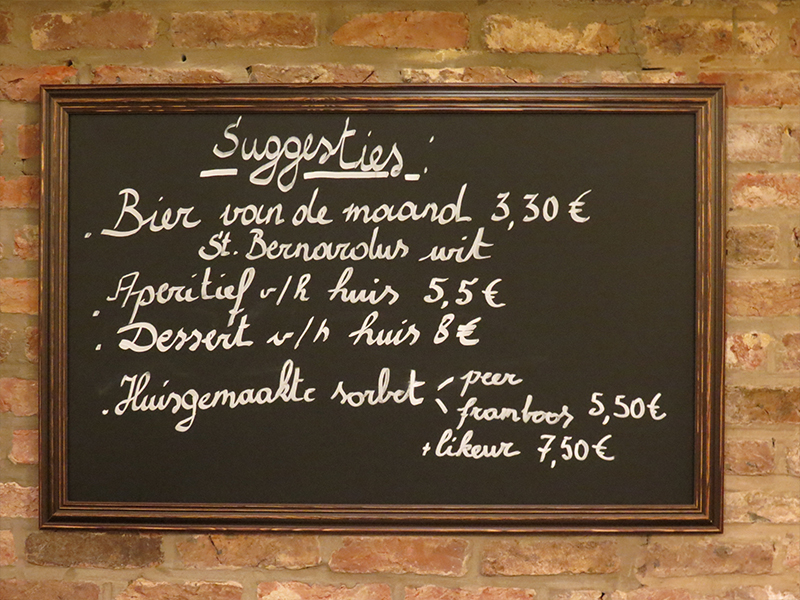 Suggesties :
. Bier van de maand 3,30 €
St. Bernardus wit
. Aperitief v/h huis 5,5 €
. Dessert v/h huis 8 €
. Huisgemaakte sorbet - peer
\ framboos 5,50 €
+ likeur 7,50 €